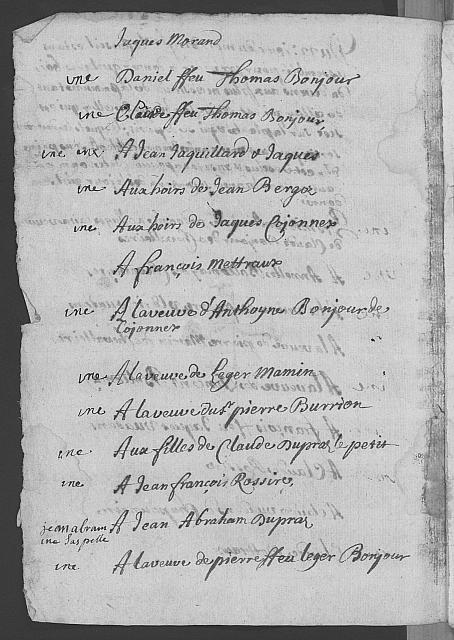 Jaques Morand
une Daniel ffeu Thomas Bonjour
une Claude ffeu Thomas Bonjour
une une A Jean Jaquillard & Jaques
une Aux hoirs de Jean Berger
une Aux hoirs de Jaques Cojonnex
A françois Mettraux
une A la veuve d'Anthoyne Bonjour de
Cojonnex
une A la veuve de Leger Mamin
une A la veuve du Sr pierre Burrion
une Aux filles de Claude Dupraz le petit
une A Jean françois Rossire
A Jean Abraham Dupraz
Jean abram
une
une A la veuve de pierre ffeu leger Bonjour